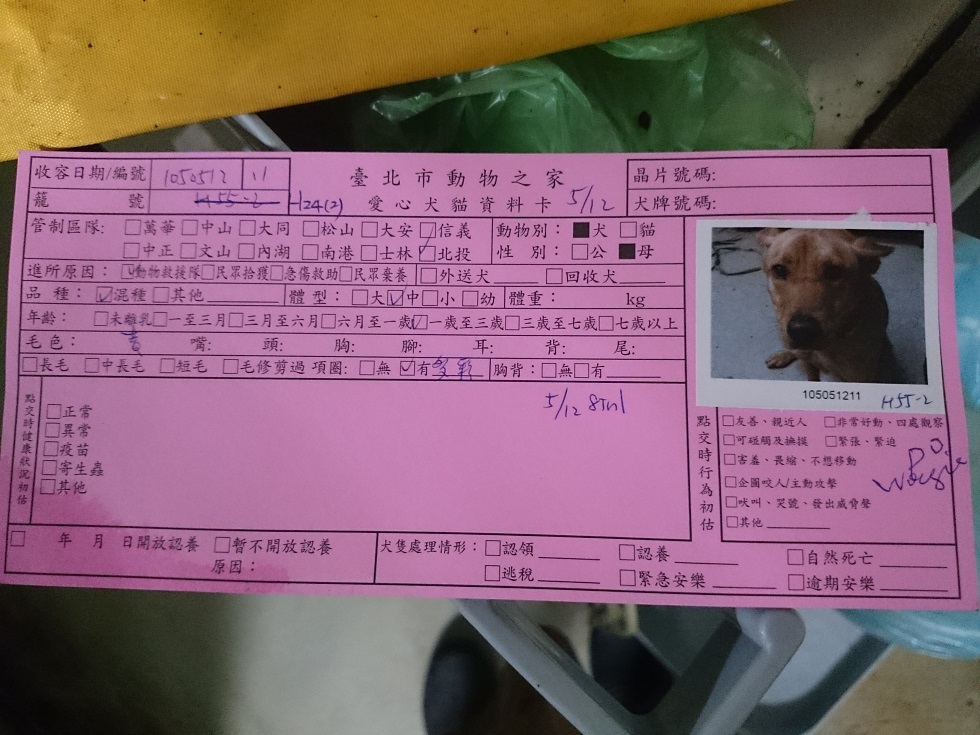 收容日期/編號 1050512 11
籠 號 H55-2 H24(2)
臺北市動物之家
愛心犬貓資料卡 5/12
晶片號碼:
犬牌號碼:
管制區隊: 萬華 中山 大同 松山 大安 信義
中正 文山 內湖 南港 士林 北投
動物別: 犬 貓
性 別: 公 母
進所原因: 動物救援隊 民眾拾獲 急傷救助 民眾棄養 外送犬 回收犬
品 種: 混種 其他 體 型: 大 中 小 幼 體重: kg
年齡: 未離乳 一至三月 三月至六月 六月至一歲 一歲至三歲 三歲至七歲 七歲以上
毛 色: 嘴: 頭: 胸: 腳: 耳: 背: 尾:
長毛 中長毛 短毛 毛修剪過 項圈: 無 有 胸背: 無 有
5/12
點交時健康狀況初估
正常
異常
疫苗
寄生蟲
其他
105051211 H55-2
點交時行為初估
友善、親近人 非常好動、四處觀察
可碰觸及撫摸 緊張、緊迫
害羞、畏縮、不想移動
企圖咬人/主動攻擊
吠叫、哭號、發出威脅聲
其他
年 月 日開放認養 暫不開放認養
原因:
犬隻處理情形: 認領 認養 自然死亡
逃稅 緊急安樂 逾期安樂